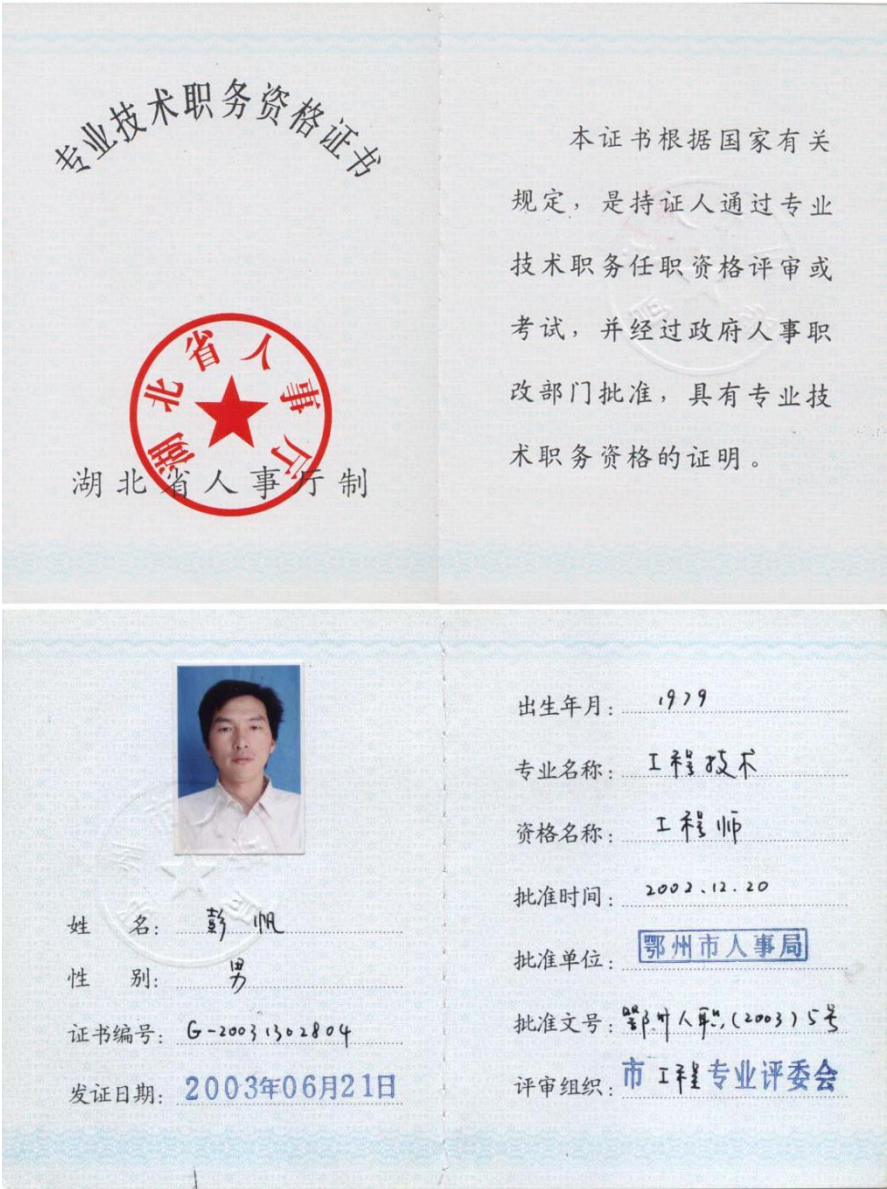 专业技术职务资格证书
湖北省人事厅
湖北省人事厅制
本证书根据国家有关
规定，是持证人通过专业
技术职务任职资格评审或
考试，并经过政府人事职
改部门批准，具有专业技
术职务资格的证明。
姓 名：彭帆
性 别：男
证书编号：G-20031302804
发证日期：2003年06月21日
出生年月：1979
专业名称：工程技术
资格名称：工程师
批准时间：2002.12.20
批准单位：鄂州市人事局
批准文号：鄂州人职(2003)5号
评审组织：市工程专业评委会